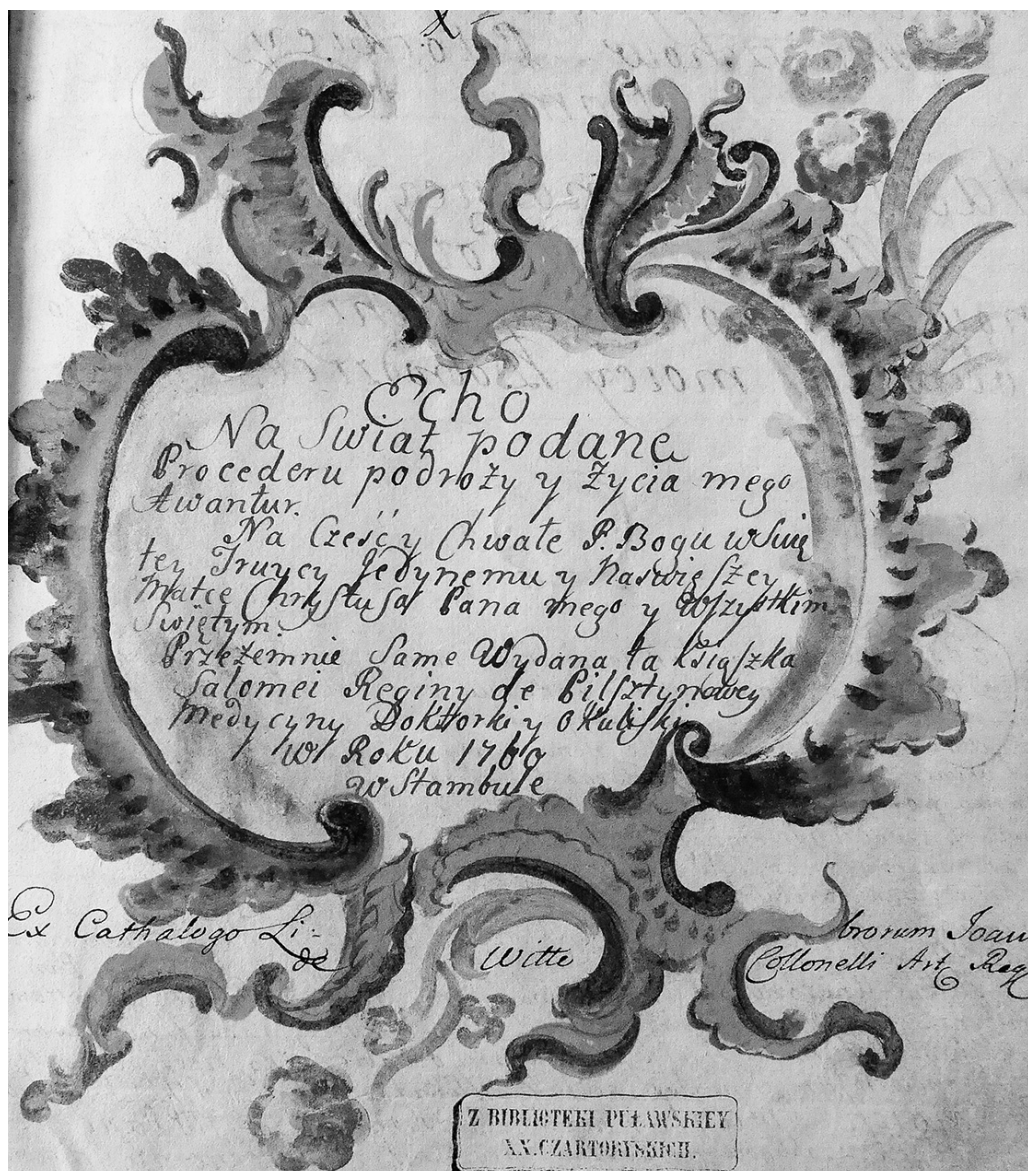 X
Echo
Na Swiat podane
Procederu podroży y Życia mego
Awantur.
Na Cześć y Chwałe P. Bogu w Swię
tey Truycy Jedynemu y Naswięszey
Matce Chrystusa Pana mego y Wszystkim
Swiętym.
Przezemnie Same Wydana ta Książka
Salomei Reginy de Pilsztynowey
Medycyny Doktorki y Okulistki
w Roku 1760
w Stambule
Ex Cathalogo Li- brorum Joan
de Witte Collonelli Art Reg
Z BIBLIOTEKI PUŁAWSKIEY
XX. CZARTORYSKICH.